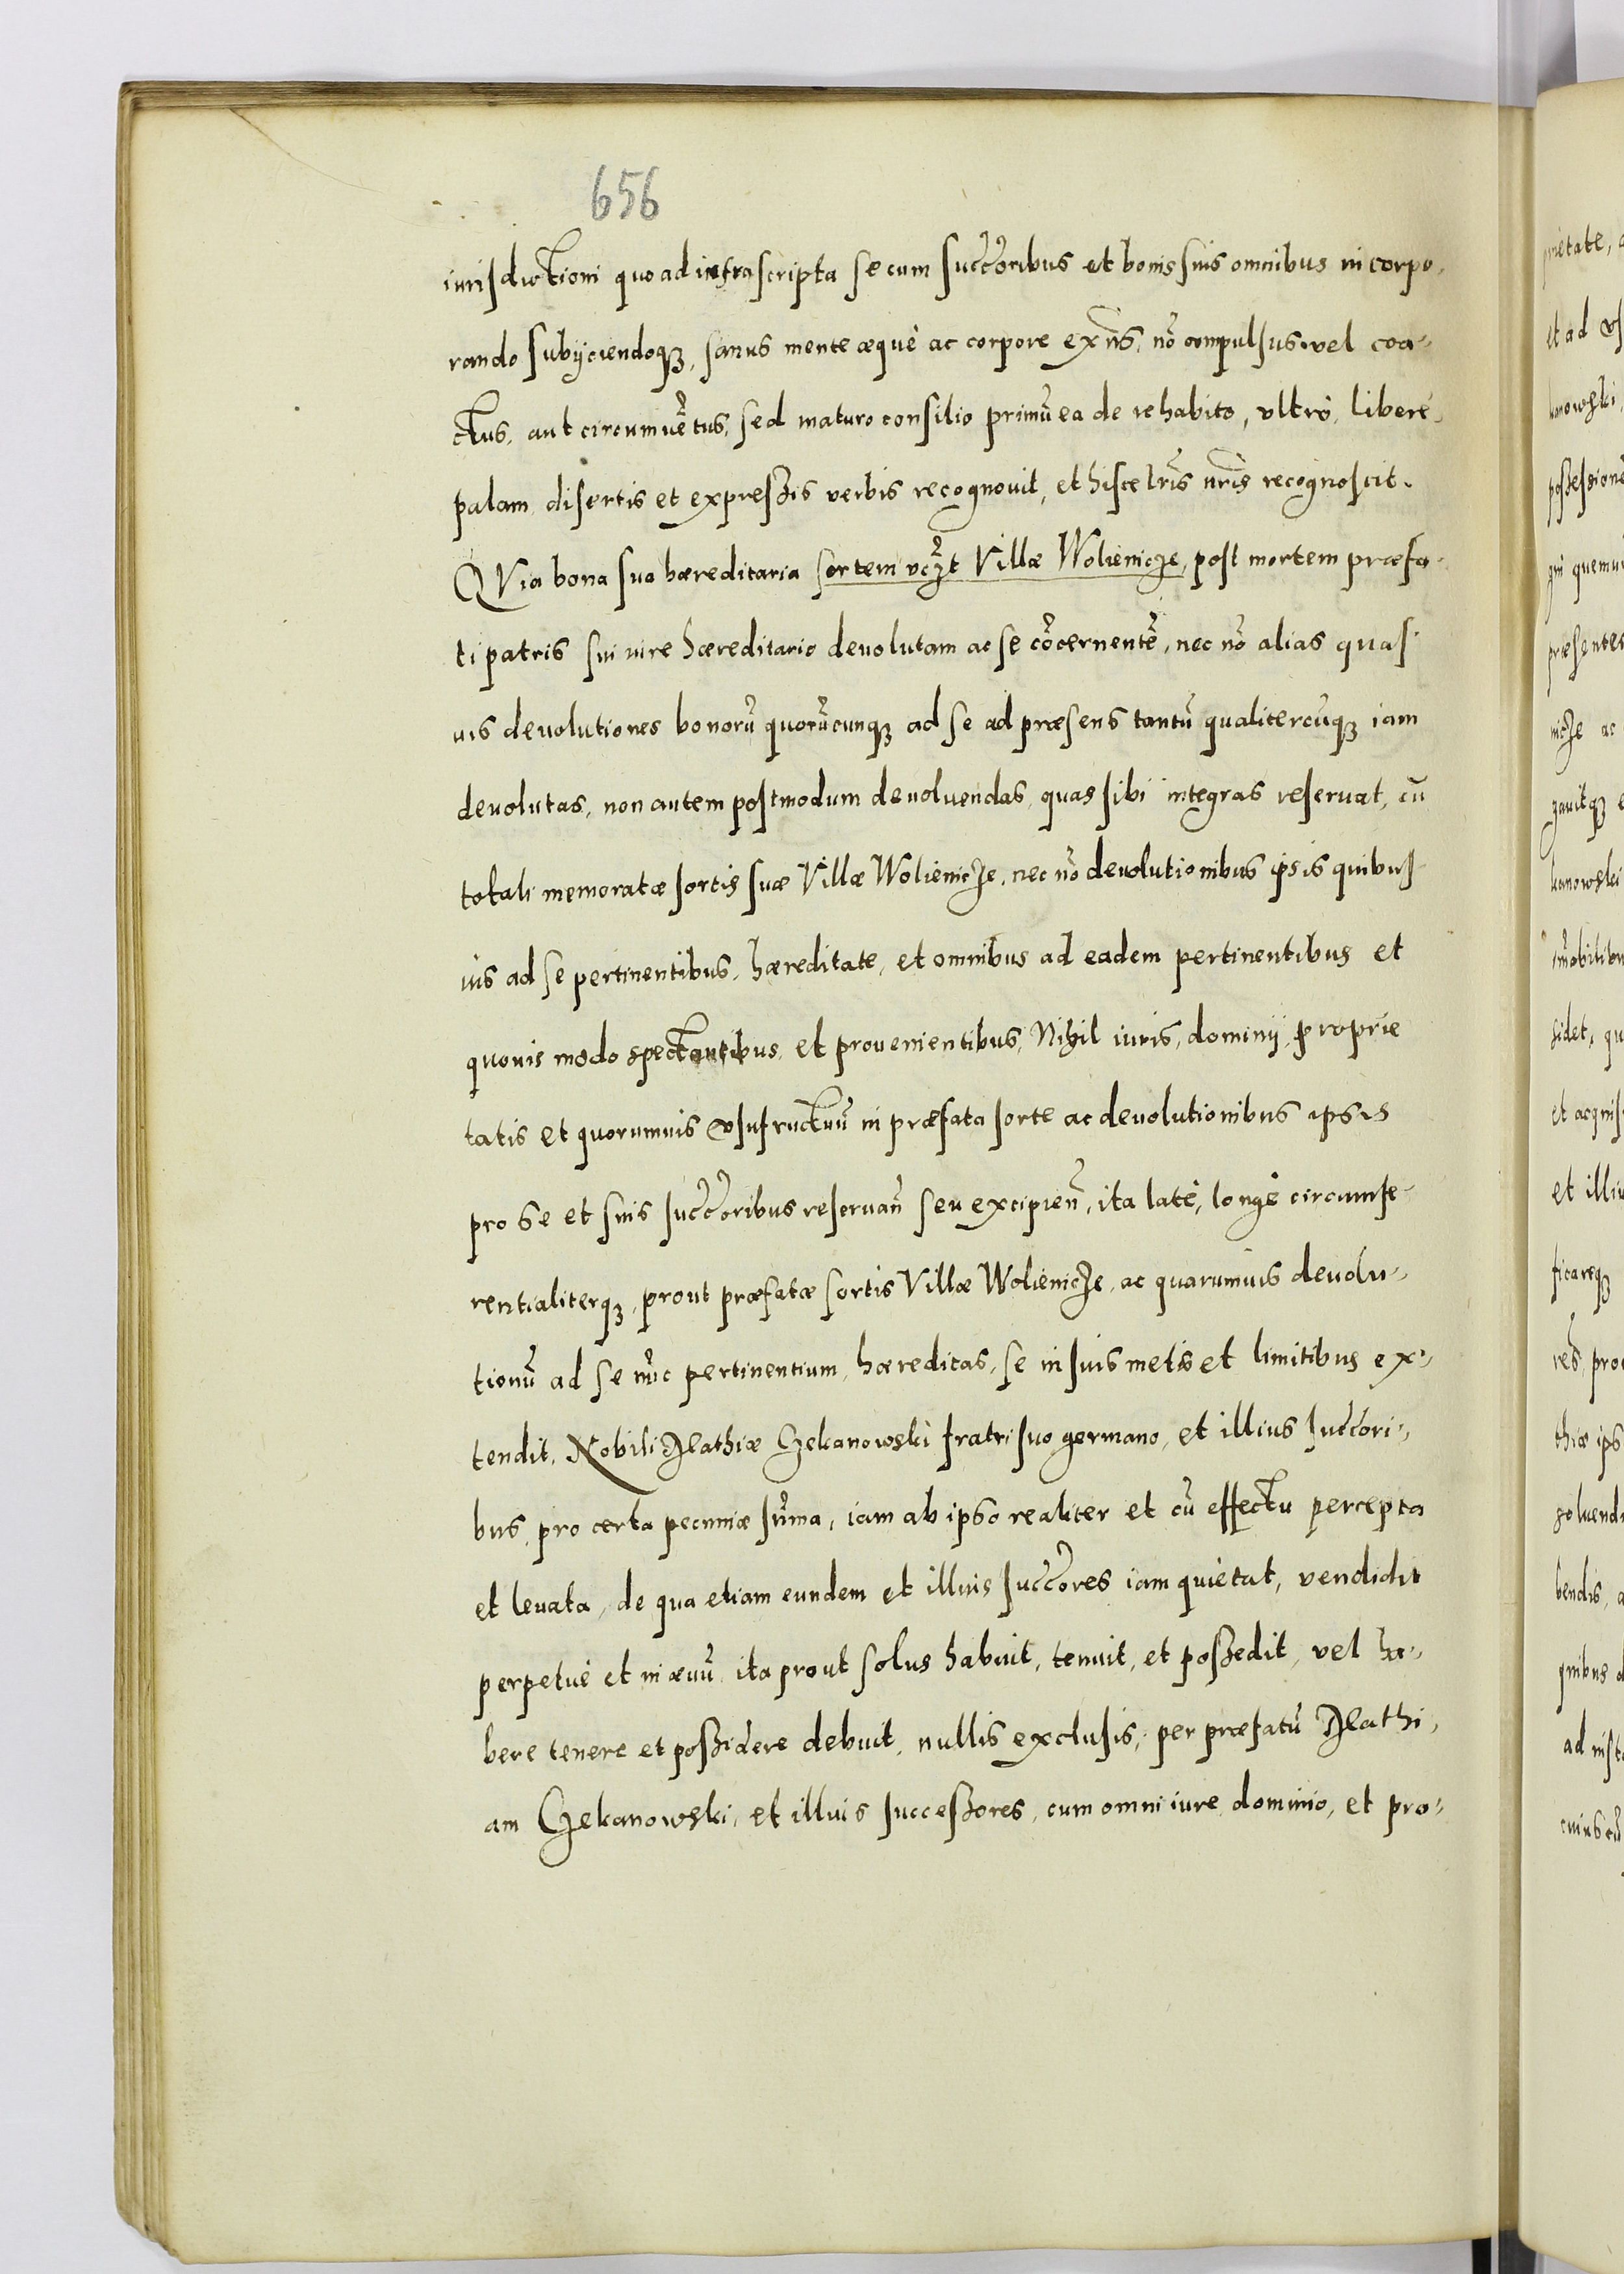 656
iurisdictioni quo ad infrascripta se cum succ̃oribus et bonis suis omnibus incorpo-
rando subijciendoqꝫ, sanus mente æquè ac corpore exñs, nõ compulsus vel coa-
ctus, aut circumuẽtus, sed maturo consilio primũ ea de re habito, vltrò, liberè,
palam, disertis et expressis verbis recognouit, et hisce lr̃is nr̃is recognoscit.
QVia bona sua hæreditaria sortem vcꝫt Villæ Wolienicze, post mortem præfa-
ti patris sui iure hæreditario deuolutam ac se cõcernentẽ, nec nõ alias quas-
uis deuolutiones bonorũ quorũcunqꝫ ad se ad præsens tantũ qualitercũqꝫ iam
deuolutas, non autem postmodum deuoluendas, quas sibi integras reseruat, cũ
totali memoratæ sortis suæ Villæ Wolienicze, nec nõ deuolutionibus ipsis quibus-
uis ad se pertinentibus, hæreditate, et omnibus ad eadem pertinentibus et
quouis modo spectantibus, et prouenientibus, Nihil iuris, dominij, proprie
tatis et quorumuis vsufructuũ in præfata sorte ac deuolutionibus ipsis
pro se et suis succ̃oribus reseruañ seu excipieñ, ita latè, longè circumfe-
rentialiterqꝫ, prout præfatæ sortis Villæ Wolienicze, ac quarumuis deuolu-
tionũ ad se nũc pertinentium, hæreditas, se in suis metis et limitibus ex-
tendit, Nobili Mathiæ Czekanowski fratri suo germano, et illius succ̃ori-
bus, pro certa pecuniæ sũma, iam ab ipso realiter et cũ effectu percepta
et leuata, de qua etiam eundem et illius succ̃ores iam quietat, vendidit
perpetuè et in æuũ, ita prout solus habuit, tenuit, et possedit, vel ha-
bere tenere et possidere debuit, nullis exclusis, per præfatũ Mathi-
am Czekanowski, et illius successores, cum omni iure, dominio, et pro-